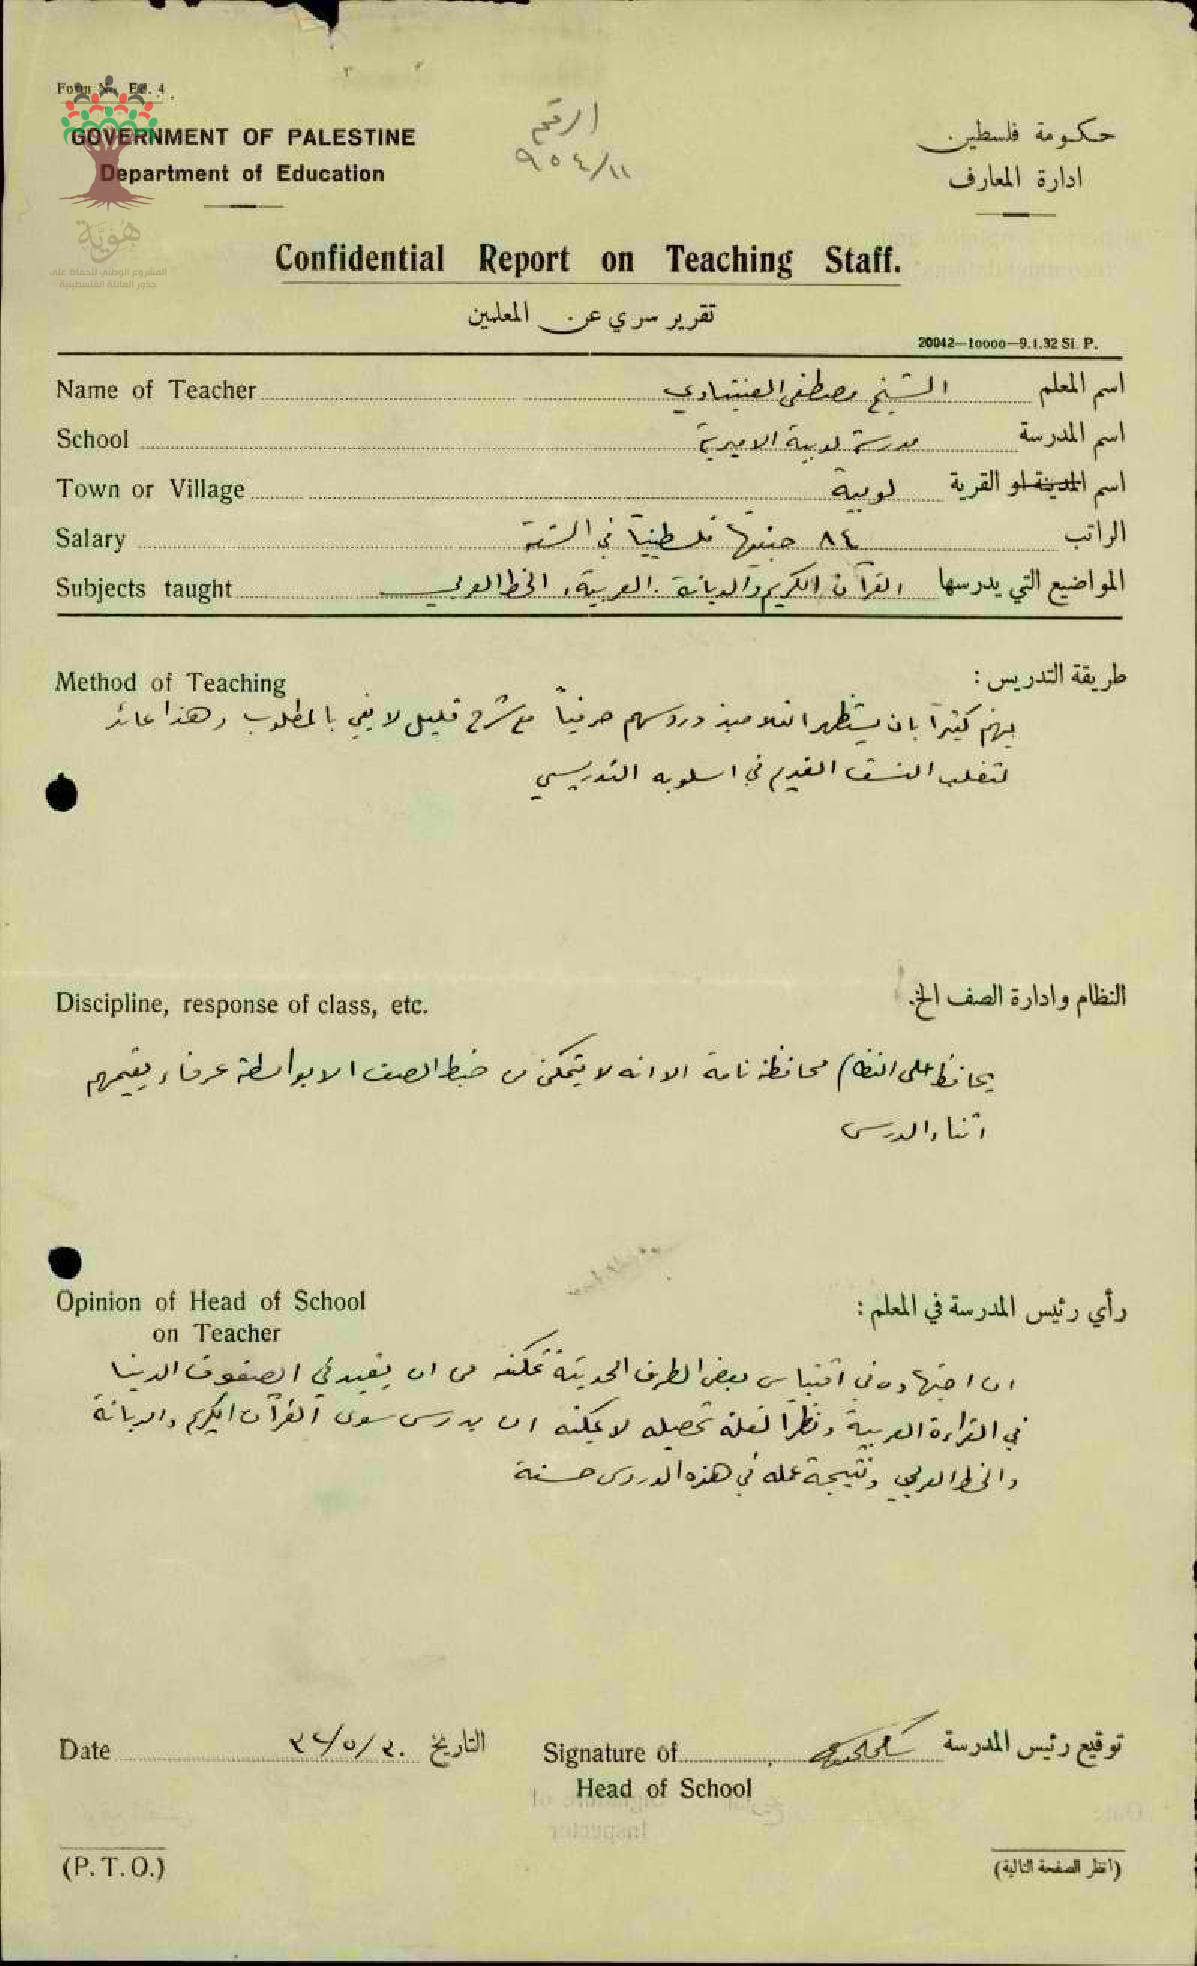 Form No. Ed. 4.
GOVERNMENT OF PALESTINE
Department of Education
حكومة فلسطين
ادارة المعارف
الرقم
٩٥٤/١١
هُوِيَّة
المشروع الوطني للحفاظ على
جذور العائلة الفلسطينية
Confidential Report on Teaching Staff.
تقرير سري عن المعلمين
20042—10000—9.1.32 Si. P.
Name of Teacher الشيخ مصطفى اسم المعلم
School مدرسة لوبية الاميرية اسم المدرسة
Town or Village لوبية اسم المدينة او القرية
Salary ٨٤ جنيها فلسطينياً في السنة الراتب
Subjects taught القرآن الكريم والديانة. العربية، الخط العربي المواضيع التي يدرسها
Method of Teaching طريقة التدريس :
يهتم كثيراً بان يستظهر التلاميذ دروسهم حرفياً مع شرح قليل لا يفي بالمطلوب وهذا عائد
لتغلب النسق القديم في اسلوبه التدريسي
Discipline, response of class, etc. النظام وادارة الصف الخ.
يحافظ على النظام محافظة تامة الا انه لا يتمكن من ضبط الصف الا بواسطة عرفاء يقيمهم
اثناء الدرس
Opinion of Head of School رأي رئيس المدرسة في المعلم :
on Teacher
ان اجتهاده في اقتباس بعض الطرق الحديثة تمكنه من ان يفيد في الصفوف الدنيا
في القراءة العربية ونظراً لقلة تحصيله لا يمكنه ان يدرس سوى القرآن الكريم والديانة
والخط العربي ونتيجة عمله في هذه الدروس حسنة
Date التاريخ Signature of توقيع رئيس المدرسة
Head of School
(P. T. O.) (انظر الصفحة التالية)